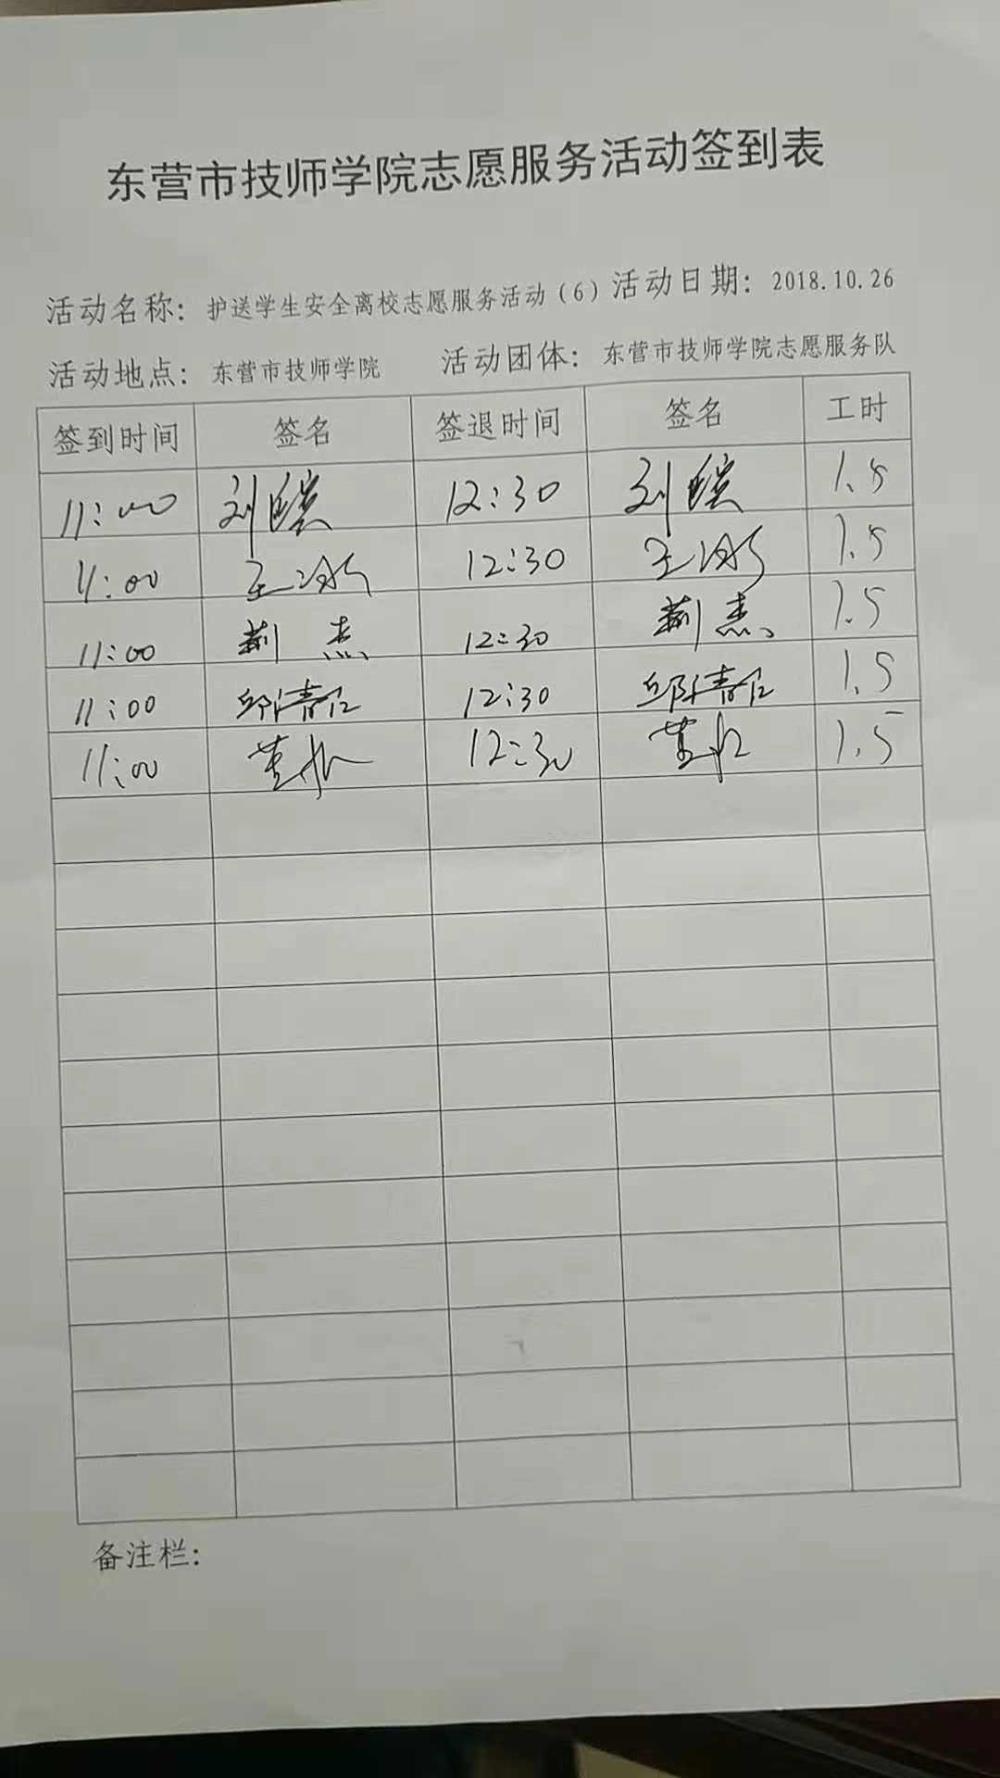 东营市技师学院志愿服务活动签到表
活动名称：护送学生安全离校志愿服务活动（6）活动日期：2018.10.26
活动地点：东营市技师学院 活动团体：东营市技师学院志愿服务队
签到时间 签名 签退时间 签名 工时
11:00 刘 12:30 刘 1.5
11:00 王 12:30 王 1.5
11:00 荆杰 12:30 荆杰 1.5
11:00 邱 12:30 邱 1.5
11:00 董 12:30 董 1.5
备注栏：